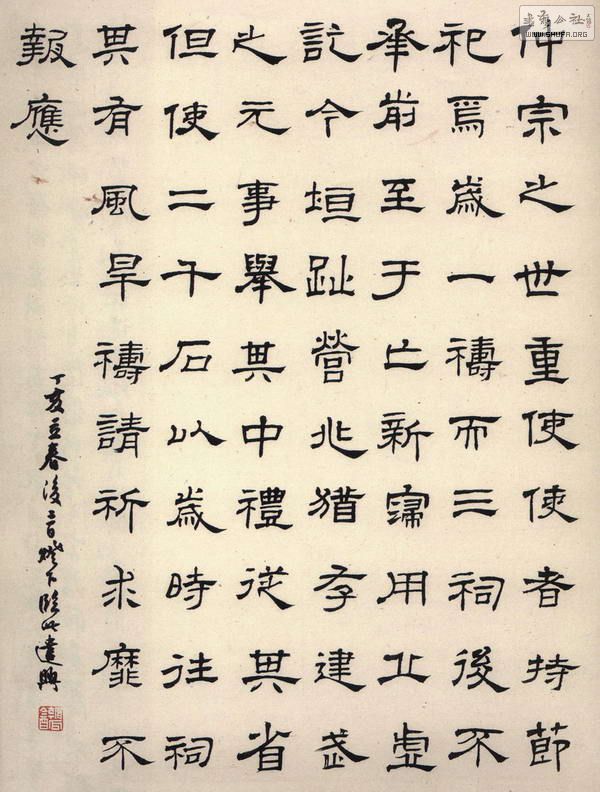 仲宗之世重使使者持節
祀焉歲一禱而三祠後不
承前至于亡新寖用丘虛
訖今垣趾營兆猶存建武
之元事舉其中禮從其省
但使二千石以歲時往祠
其有風旱禱請祈求靡不
報應
丁亥立春後二日燈下臨此遣興
公社
WWW.SHUFA.ORG